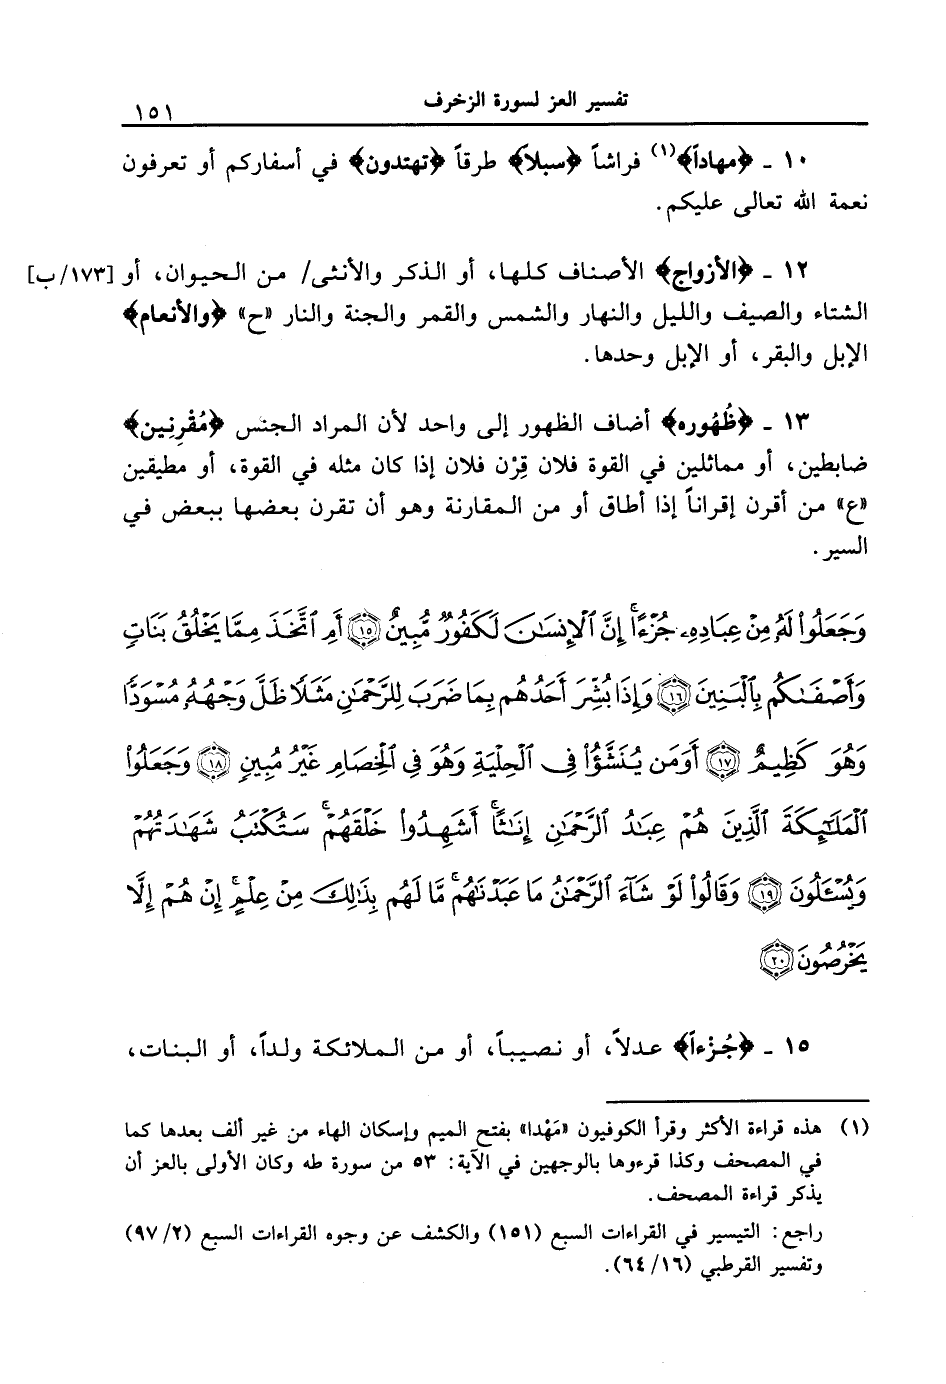 تفسير العز لسورة الزخرف ١٥١
١٠ ـ ﴿مهاداً﴾(١) فراشاً ﴿سبلاً﴾ طرقاً ﴿تهتدون﴾ في أسفاركم أو تعرفون
نعمة الله تعالى عليكم.
١٢ ـ ﴿الأزواج﴾ الأصناف كلها، أو الذكر والأنثى/ من الحيوان، أو [١٧٣/ب]
الشتاء والصيف والليل والنهار والشمس والقمر والجنة والنار «ح» ﴿والأنعام﴾
الإبل والبقر، أو الإبل وحدها.
١٣ ـ ﴿ظُهُوره﴾ أضاف الظهور إلى واحد لأن المراد الجنس ﴿مُقْرِنِين﴾
ضابطين، أو مماثلين في القوة فلان قِرْن فلان إذا كان مثله في القوة، أو مطيقين
«ع» من أقرن إقراناً إذا أطاق أو من المقارنة وهو أن تقرن بعضها ببعض في
السير.
وَجَعَلُواْ لَهُۥ مِنْ عِبَادِهِۦ جُزْءًاۚ إِنَّ ٱلْإِنسَٰنَ لَكَفُورٌ مُّبِينٌ ۝١٥ أَمِ ٱتَّخَذَ مِمَّا يَخْلُقُ بَنَاتٍ
وَأَصْفَىٰكُم بِٱلْبَنِينَ ۝١٦ وَإِذَا بُشِّرَ أَحَدُهُم بِمَا ضَرَبَ لِلرَّحْمَٰنِ مَثَلًا ظَلَّ وَجْهُهُۥ مُسْوَدًّا
وَهُوَ كَظِيمٌ ۝١٧ أَوَمَن يُنَشَّؤُاْ فِى ٱلْحِلْيَةِ وَهُوَ فِى ٱلْخِصَامِ غَيْرُ مُبِينٍ ۝١٨ وَجَعَلُواْ
ٱلْمَلَٰٓئِكَةَ ٱلَّذِينَ هُمْ عِبَٰدُ ٱلرَّحْمَٰنِ إِنَٰثًاۚ أَشَهِدُواْ خَلْقَهُمْۚ سَتُكْتَبُ شَهَٰدَتُهُمْ
وَيُسْـَٔلُونَ ۝١٩ وَقَالُواْ لَوْ شَآءَ ٱلرَّحْمَٰنُ مَا عَبَدْنَٰهُمۗ مَّا لَهُم بِذَٰلِكَ مِنْ عِلْمٍۖ إِنْ هُمْ إِلَّا
يَخْرُصُونَ ۝٢٠
١٥ ـ ﴿جُزْءاً﴾ عدلاً، أو نصيباً، أو من الملائكة ولداً، أو البنات،
(١) هذه قراءة الأكثر وقرأ الكوفيون «مَهْدا» بفتح الميم وإسكان الهاء من غير ألف بعدها كما
في المصحف وكذا قرءوها بالوجهين في الآية: ٥٣ من سورة طه وكان الأولى بالعز أن
يذكر قراءة المصحف.
راجع: التيسير في القراءات السبع (١٥١) والكشف عن وجوه القراءات السبع (٢/ ٩٧)
وتفسير القرطبي (١٦/ ٦٤).